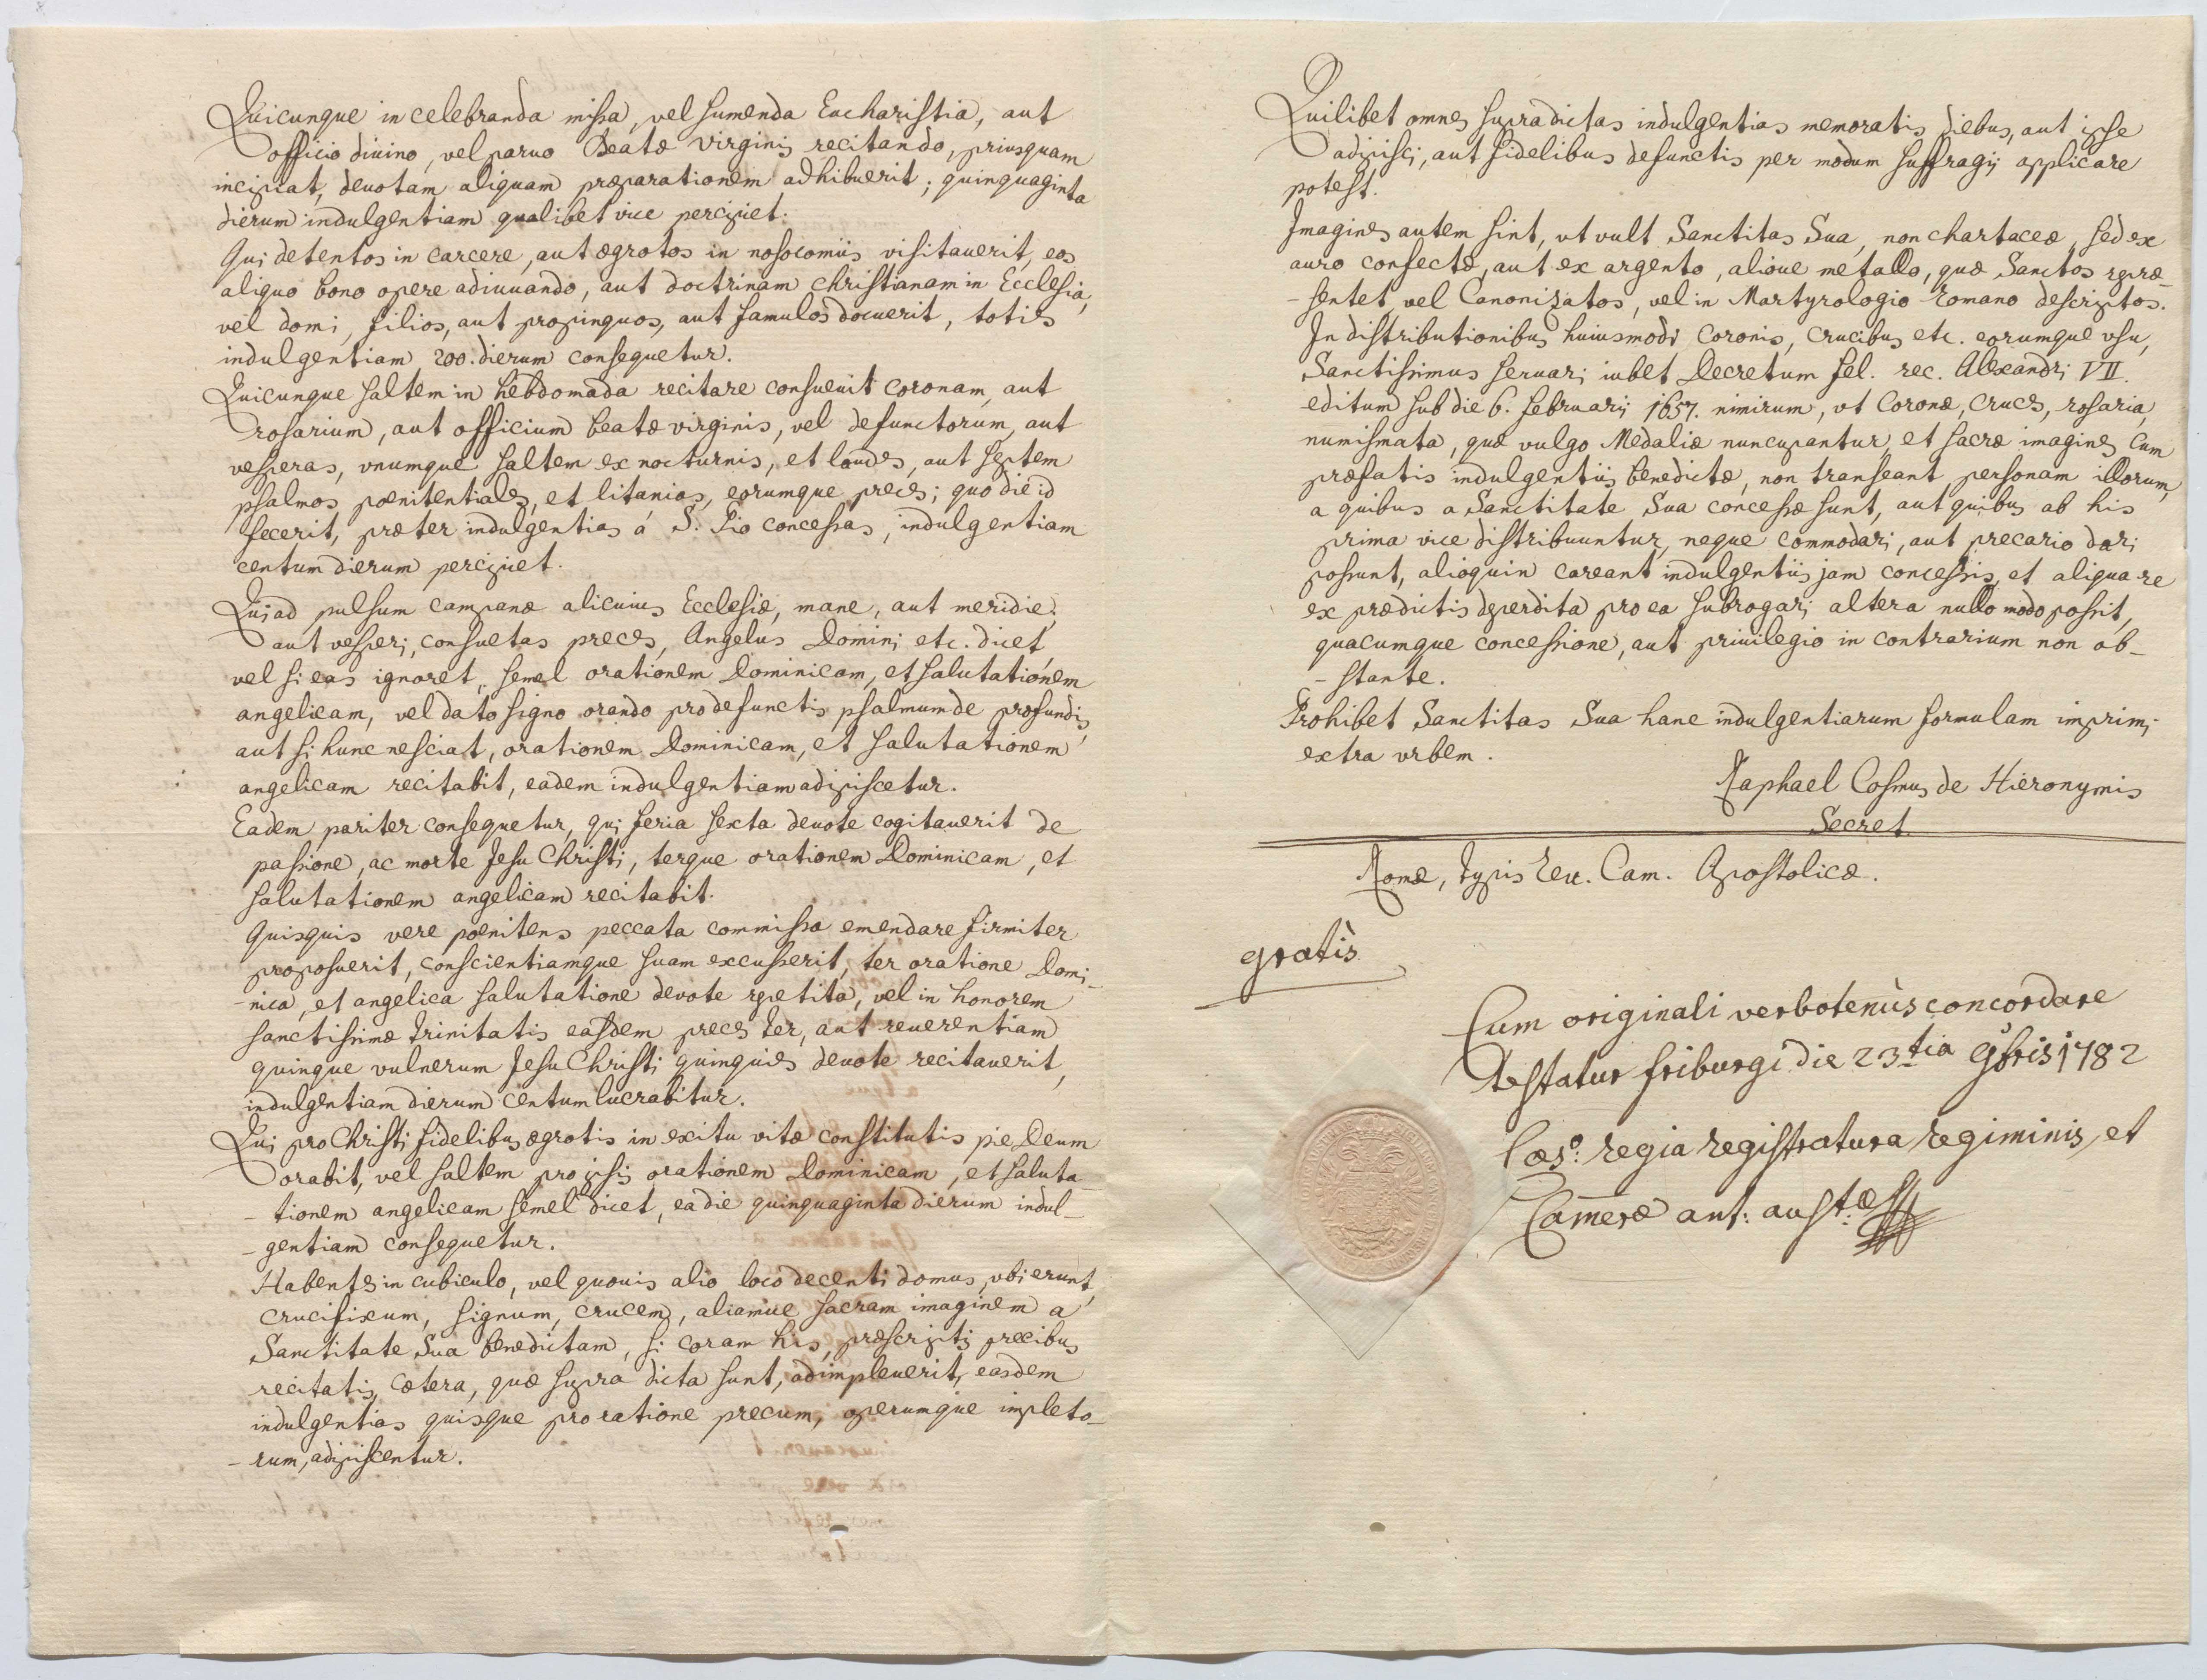 Quicunque in celebranda missa, vel sumenda Eucharistia, aut
officio diuino, vel paruo Beatæ Virginis recitando, priusquam
incipiat, deuotam aliquam præparationem adhibuerit; quinquaginta
dierum indulgentiam qualibet vice percipiet.
Qui detentos in carcere, aut ægrotos in nosocomiis visitauerit, eos
aliquo bono opere adiuuando, aut doctrinam christianam in Ecclesia,
vel domi, filios, aut propinquos, aut famulos docuerit, toties
indulgentiam 200. dierum consequetur.
Quicunque saltem in hebdomada recitare consueuit coronam, aut
rosarium, aut officium beatæ virginis, vel defunctorum, aut
vesperas, vnumque saltem ex nocturnis, et laudes, aut septem
psalmos pœnitentiales, et litanias, eorumque preces; quo die id
fecerit, præter indulgentias á S. Pio concessas, indulgentiam
centum dierum percipiet.
Qui ad pulsum campanæ alicuius Ecclesiæ, mane, aut meridie,
aut vesperi, consuetas preces, Angelus Domini etc. dicet,
vel si eas ignoret, semel orationem Dominicam, et salutationem
angelicam, vel dato signo orando pro defunctis psalmum de profundis,
aut si hunc nesciat, orationem Dominicam, et salutationem
angelicam recitabit, eadem indulgentiam adipiscetur.
Eadem pariter consequetur, qui feria sexta deuote cogitauerit de
passione, ac morte Jesu Christi, terque orationem Dominicam, et
salutationem angelicam recitabit.
Quisquis vere pœnitens peccata commissa emendare firmiter
proposuerit, conscientiamque suam excusserit, ter oratione Domi-
-nica, et angelica salutatione devote repetita, vel in honorem
sanctissimæ trinitatis easdem preces ter, aut reuerentiam
quinque vulnerum Jesu Christi quinquies deuote recitauerit,
indulgentiam dierum centum lucrabitur.
Qui pro Christi fidelibus ægrotis in exitu vitæ constitutis pie Deum
orabit, vel saltem pro ipsis orationem Dominicam, et saluta-
-tionem angelicam semel dicet, ea die quinquaginta dierum indul-
-gentiam consequetur.
Habentes in cubiculo, vel quouis alio loco decenti domus, vbi erunt,
crucifixum, signum, crucem, aliamue sacram imaginem a
Sanctitate Sua benedictam, si coram his, præscriptis precibus
recitatis, cætera, quæ supra dicta sunt, adimpleuerit, easdem
indulgentias quisque pro ratione precum, operumque impleto-
-rum, adipiscentur.
Quilibet omnes supradictas indulgentias memoratis diebus, aut ipse
adipisci, aut fidelibus defunctis per modum suffragij applicare
potest.
Imagines autem sint, vt vult Sanctitas Sua, non chartaceæ, sed ex
auro confectæ, aut ex argento, alioue metallo, quæ Sanctos repræ-
-sentet, vel Canonizatos, vel in Martyrologio Romano descriptos.
In distributionibus huiusmodi Coronis, Crucibus etc. eorumque vsu,
Sanctissimus seruari iubet Decretum fel. rec. Alexandri VII.
editum sub die 6. februarij 1657. nimirum, vt Coronæ, Cruces, rosaria,
numismata, quæ vulgo Medaliæ nuncupantur, et sacræ imagines cum
præfatis indulgentiis benedictæ, non transeant personam illorum,
a quibus a Sanctitate Sua concessæ sunt, aut quibus ab his
prima vice distribuuntur, neque commodari, aut precario dari
possunt, alioquin careant indulgentiis jam concessis, et aliqua re
ex prædictis deperdita pro ea subrogari altera nullo modo possit,
quacumque concessione, aut priuilegio in contrarium non ob-
-stante.
Prohibet Sanctitas Sua hanc indulgentiarum formulam imprimi
extra vrbem.
Raphael Cosmus de Hieronymis
Secret.
Romæ, typis Reu. Cam. Apostolicæ.
gratis
Cum originali verbotenùs concordare
testatur friburgi die 23tia 9bris 1782
Cæs: regia registratura regiminis, et
Cameræ ant: aust:æ